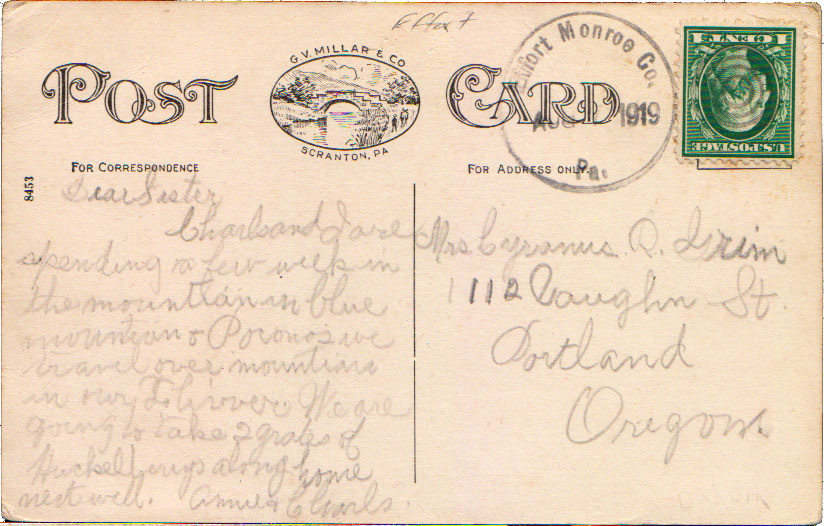 Effort
G.V. MILLAR & CO
POST CARD
SCRANTON, PA
Effort Monroe Co.
AUG 1919
Pa.
1 CENT 1
U.S. POSTAGE
FOR CORRESPONDENCE
FOR ADDRESS ONLY.
8453
Dear Sister
Charls and I are
spending a few week in
the mountian in blue
mountian & Poconos we
travel over mountians
in our Flivver We are
going to take 2 grates of
Huckelberrys along home
next well. Annie & Charls.
Mrs Cyranus R. Grim
1112 Vaughn St.
Portland
Oregon